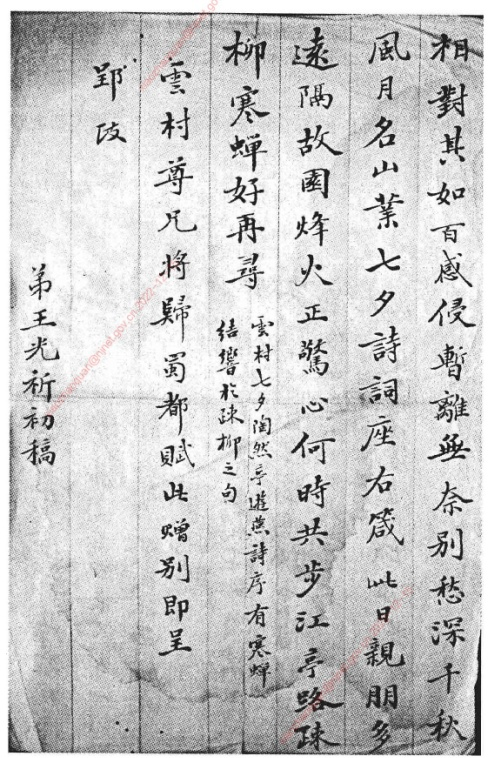 相對其如百感侵暫離無奈別愁深千秋
風月名山業七夕詩詞座右箴 此日親朋多
遠隔故園烽火正驚心何時共步江亭路疎
柳寒蟬好再尋 雲村七夕陶然亭遊燕詩序有寒蟬
結響於疎柳之句
雲村尊兄將歸蜀都賦此贈別即呈
郢政
弟王光祈初稿